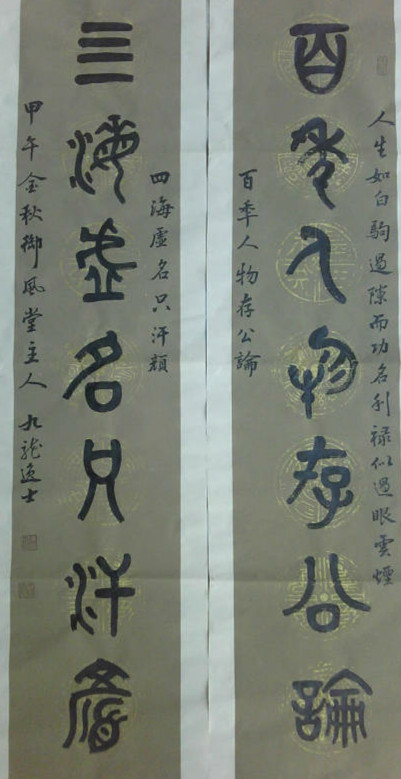 人生如白駒過隙而功名利禄似過眼雲煙
百年人物存公論
百秊人物存公論
四海虛名只汗顏
四海虛名只汗顏
甲午金秋御風堂主人九龍逸士